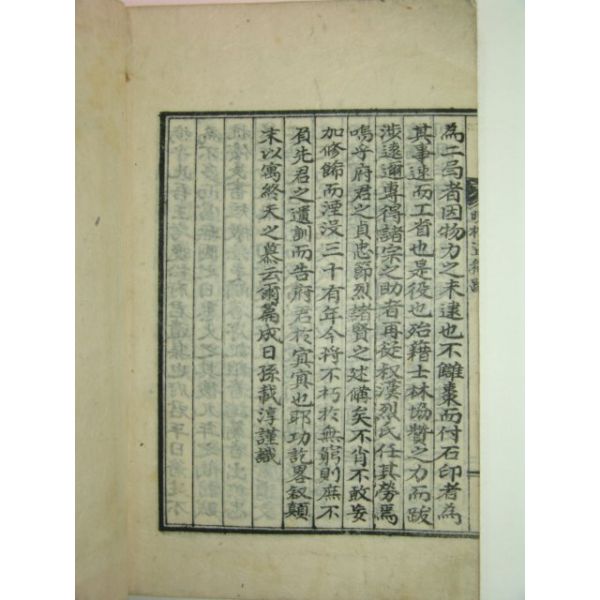 為二局者因物力之未逮也不雕棗而付石印者為
其事速而工省也是役也殆籍士林協贊之力而跋
涉遠邇專得諸宗之助者再從权漢烈氏任其勞焉
嗚乎府君之貞忠節烈諸賢之述備矣不肖不敢妄
加修餙而湮没三十有年今將不朽於無窮則庶不
負先君之遺訓而告府君於冥冥也耶功訖畧叙顛
末以寓終天之慕云爾萹成日孫載淳謹識